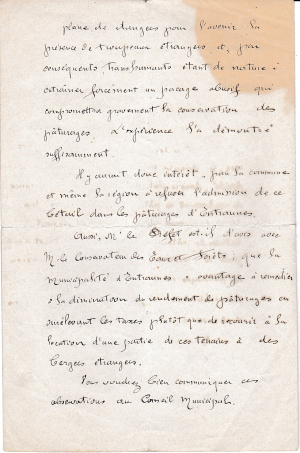 pleine de dangers pour l'avenir la
présence de troupeaux étrangers et, par
conséquents, transhumants étant de nature à
entraîner forcément un pacage abusif qui
compromettra gravement la conservation des
pâturages. L'expérience l'a démontré
suffisamment.
Il y aurait donc intérêt, pour la commune
et même la région à refuser l'admission de ce
bétail dans les pâturages d'Entraunes.
Aussi, Mr le Préfet est-il d'avis avec
M. le Conservateur des Eaux et Forêts, que la
municipalité d'Entraunes a avantage à remédier
à la diminution du rendement des pâturages en
surélevant les taxes plutôt que de recourir à la
location d'une partie de ces terrains à des
bergers étrangers.
Vous voudrez bien communiquer ces
observations au Conseil Municipal.